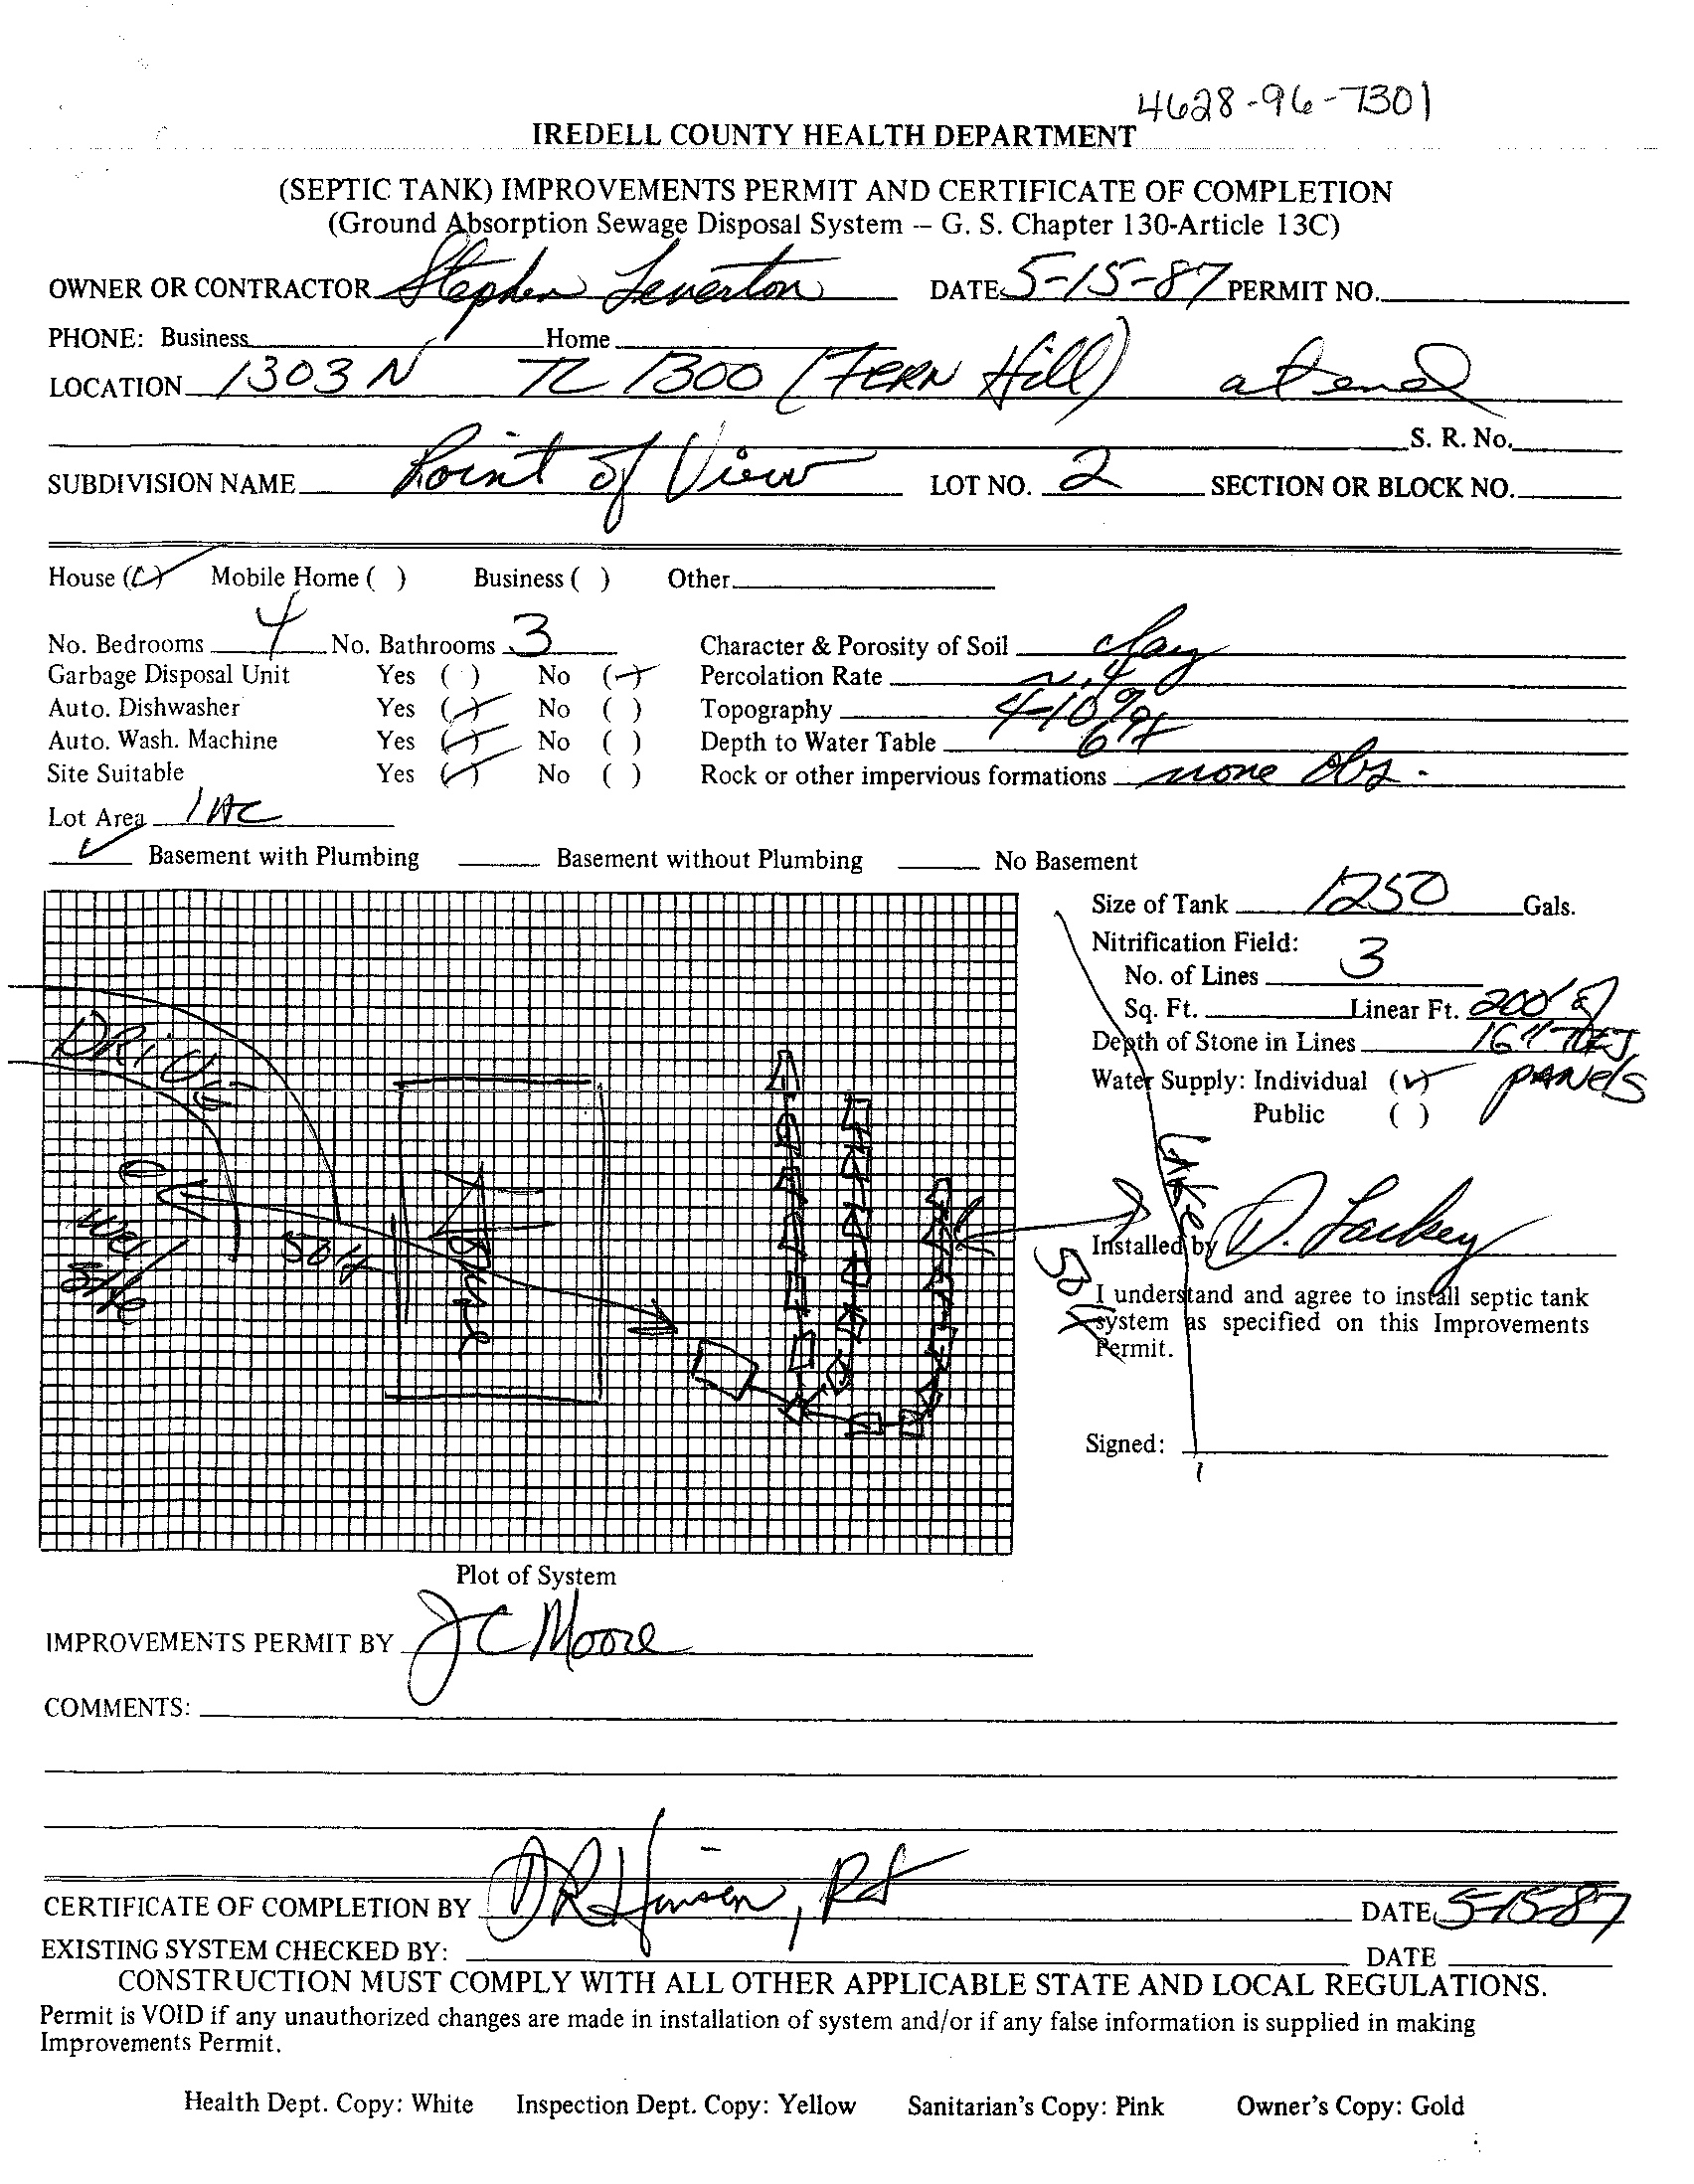 4628-96-7301
IREDELL COUNTY HEALTH DEPARTMENT
(SEPTIC TANK) IMPROVEMENTS PERMIT AND CERTIFICATE OF COMPLETION
(Ground Absorption Sewage Disposal System – G. S. Chapter 130-Article 13C)
OWNER OR CONTRACTOR Stephen Leverton DATE 5-15-87 PERMIT NO.
PHONE: Business Home
LOCATION 1303 N TL 1300 (FERN Hill) at end
S. R. No.
SUBDIVISION NAME Point of View LOT NO. 2 SECTION OR BLOCK NO.
House (✓) Mobile Home ( ) Business ( ) Other
No. Bedrooms 4 No. Bathrooms 3 Character & Porosity of Soil clay
Garbage Disposal Unit Yes ( ) No (✓) Percolation Rate ~.4
Auto. Dishwasher Yes (✓) No ( ) Topography 4-10%
Auto. Wash. Machine Yes (✓) No ( ) Depth to Water Table 6ft
Site Suitable Yes (✓) No ( ) Rock or other impervious formations none obs.
Lot Area 1 AC
✓ Basement with Plumbing Basement without Plumbing No Basement
Size of Tank 1250 Gals.
Nitrification Field:
No. of Lines 3
Sq. Ft. Linear Ft. 200' of
Depth of Stone in Lines 16"
panels
Water Supply: Individual (✓)
Public ( )
DRive
50ft
House
Lake
50
Installed by D. Lackey
I understand and agree to install septic tank
system as specified on this Improvements
Permit.
Signed:
Plot of System
IMPROVEMENTS PERMIT BY JC Moore
COMMENTS:
CERTIFICATE OF COMPLETION BY DATE 5-15-87
EXISTING SYSTEM CHECKED BY: DATE
CONSTRUCTION MUST COMPLY WITH ALL OTHER APPLICABLE STATE AND LOCAL REGULATIONS.
Permit is VOID if any unauthorized changes are made in installation of system and/or if any false information is supplied in making
Improvements Permit.
Health Dept. Copy: White Inspection Dept. Copy: Yellow Sanitarian's Copy: Pink Owner's Copy: Gold